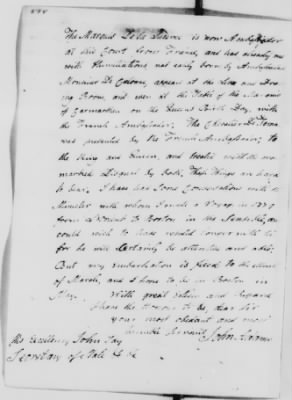 The Marquis De la Luzerne is now Ambassador
at this Court from France, and has already met
with Humiliations, not easily born by Ambassadors
Monsieur De Calonne, appears at the Levee and Draw
ing Room, and even at the Table of the Marquis
of Carmarthen on the Queens Birth Day, with
the French Ambassador: The Chevalier De Ternan
was presented by the French Ambassador, to
the King and Queen, and treated with the most
marked Disgust by both. These Things are hard
to bear. I have had some Conversations with the
Minister with whom I made a Voyage in 1779
from L'Orient to Boston in the Sensible, and
could wish to have
for he will certainly be attentive and
But my embarkation is fixed to the
of March, and I hope to be in Boston in
May. With great Esteem and Regard
I have the Honour to be, dear Sir
your most obedient and most
humble Servant John Adams
His Excellency John Jay
Secretary of State &c &c